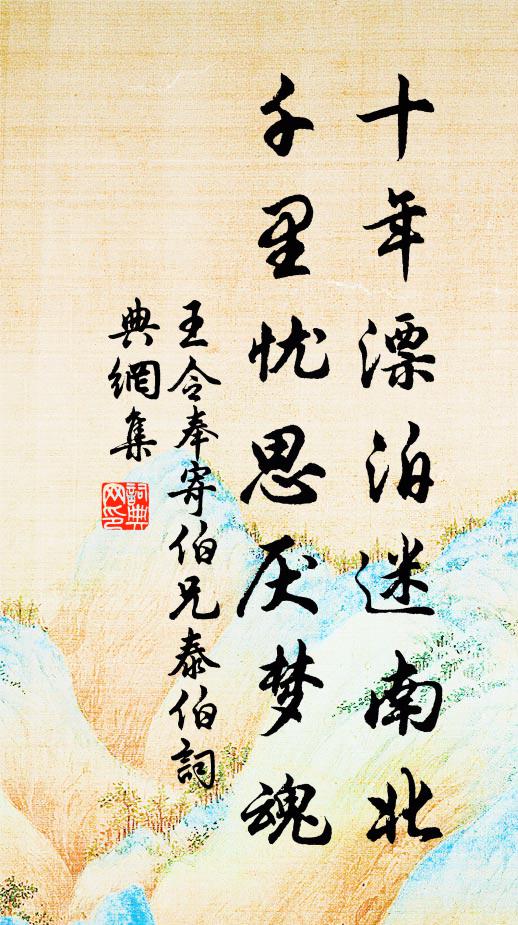 十年漂泊迷南北
千里忧思厌梦魂
王令奉寄伯兄泰伯詞
典網集
詞典
网印